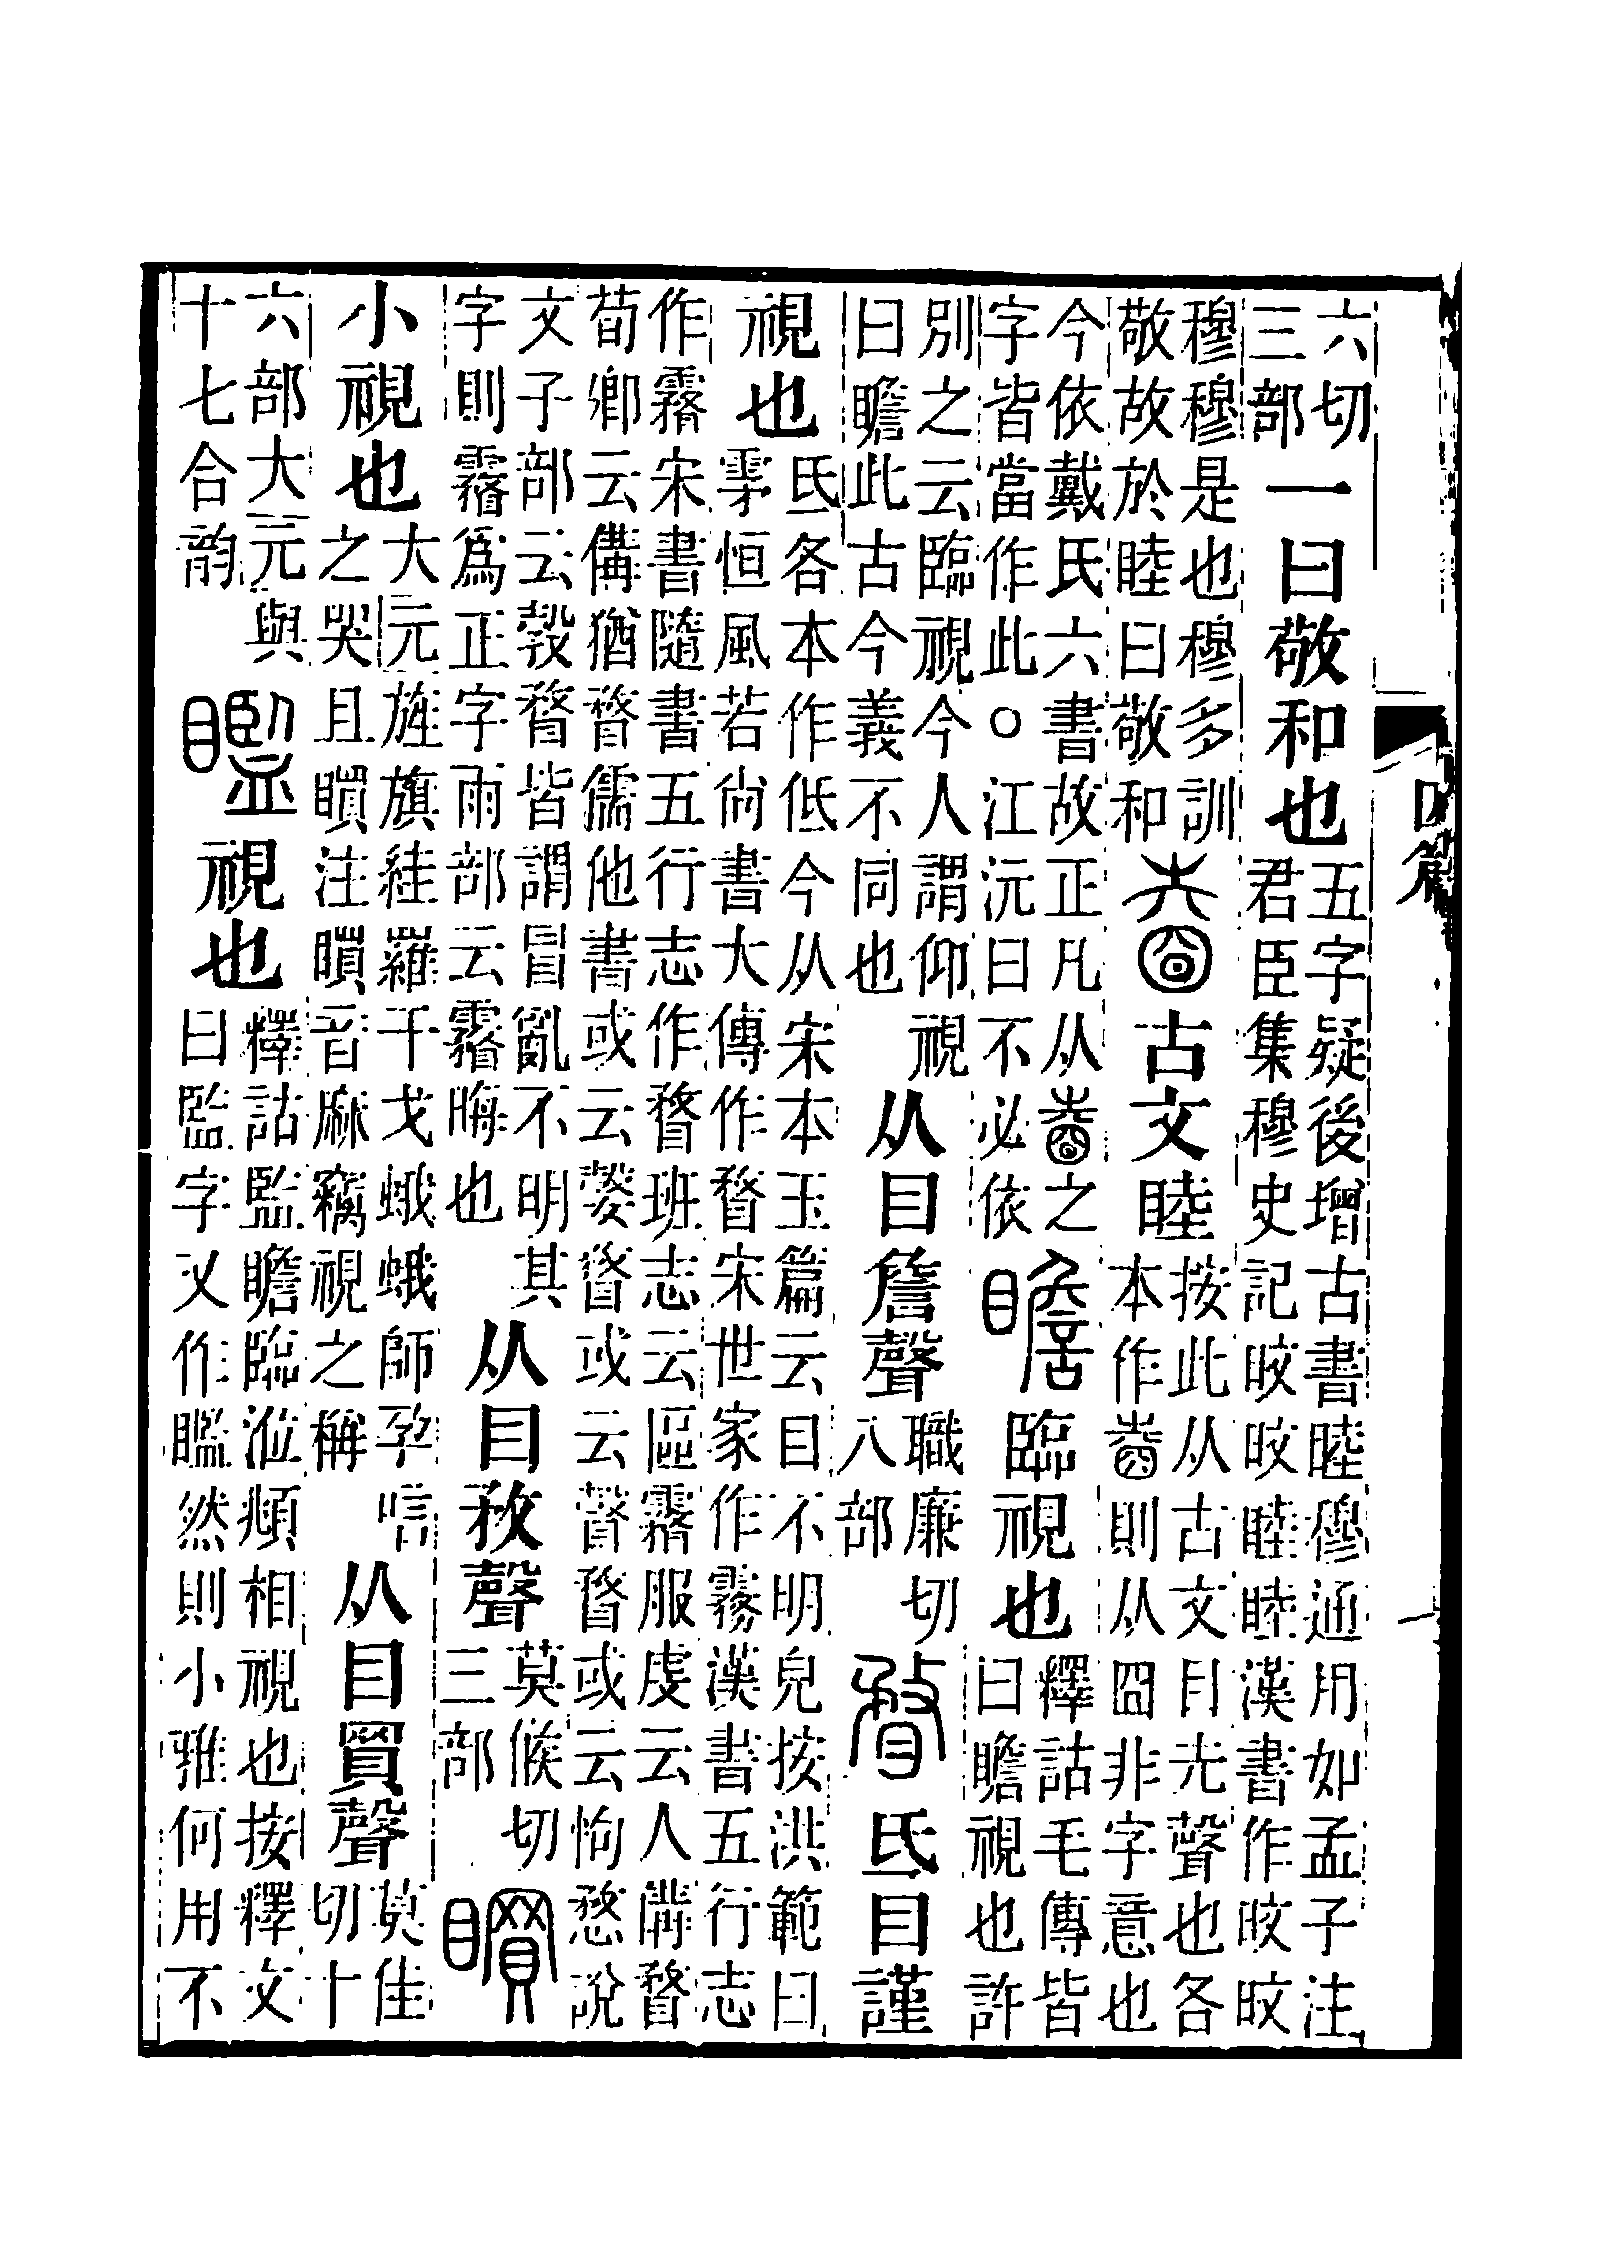 四篇
六切三部一曰敬和也五字疑後增古書睦穆通用如孟子注君臣集穆史記旼旼睦睦漢書作旼旼
穆穆是也穆多訓敬故於睦曰敬和古文睦按此从古文目圥聲也各本作則从囧非字意也
今依戴氏六書故正凡从之字皆當作此○江沅曰不必依瞻臨視也釋詁毛傳皆曰瞻視也許
別之云臨視今人謂仰視曰瞻此古今義不同也从目詹聲職廉切八部瞀氐目謹
視也氐各本作低今从宋本玉篇云目不明皃按洪範曰雺恒風若尙書大傳作瞀宋世家作霧漢書五行志
作霿宋書隨書五行志作瞀班志云區霿服虔云人傋瞀荀卿云傋猶瞀儒他書或云婺瞀或云瞉瞀或云怐愗說
文子部云㝅瞀皆謂冒亂不明其字則霿爲正字雨部云霿晦也从目敄聲莫候切三部䁲
小視也大元旌旗絓羅干戈蛾蛾師孕唁之哭且䁲注䁲音麻竊視之稱从目買聲莫佳切十
六部大元與十七合韵𥌈視也釋詁監瞻臨涖頫相視也按釋文曰監字又作𥌈然則小雅何用不